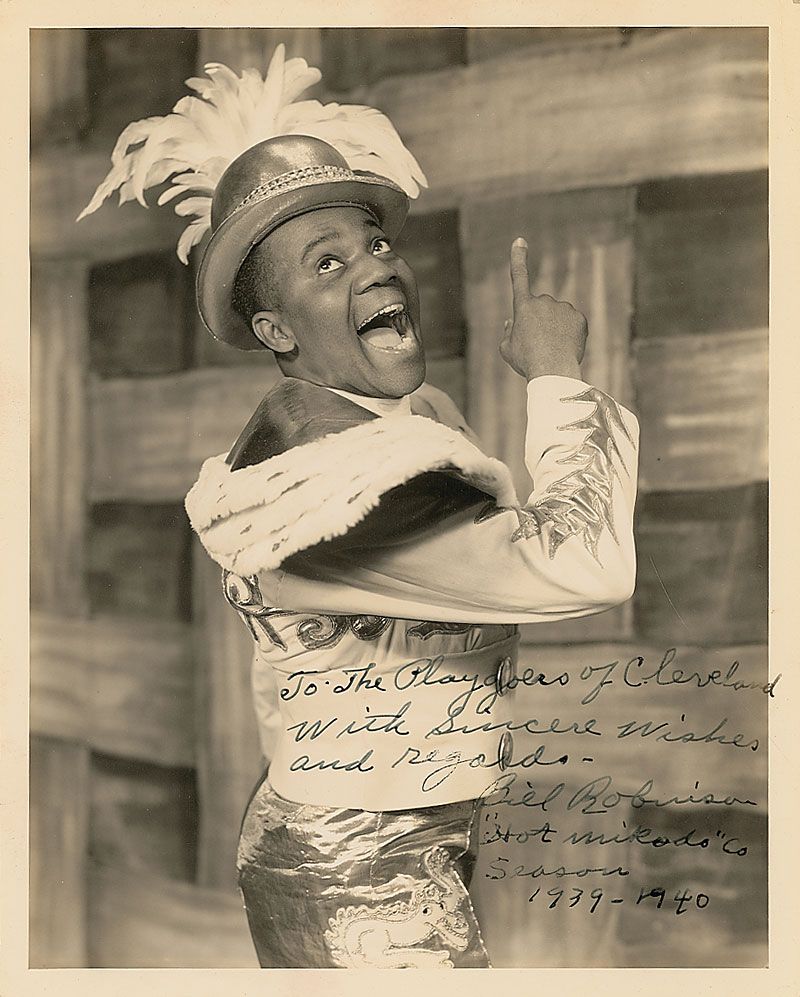 To The Playgoers of Cleveland
With Sincere Wishes
and regards -
Bill Robinson
"Hot mikado" Co
Season
1939-1940